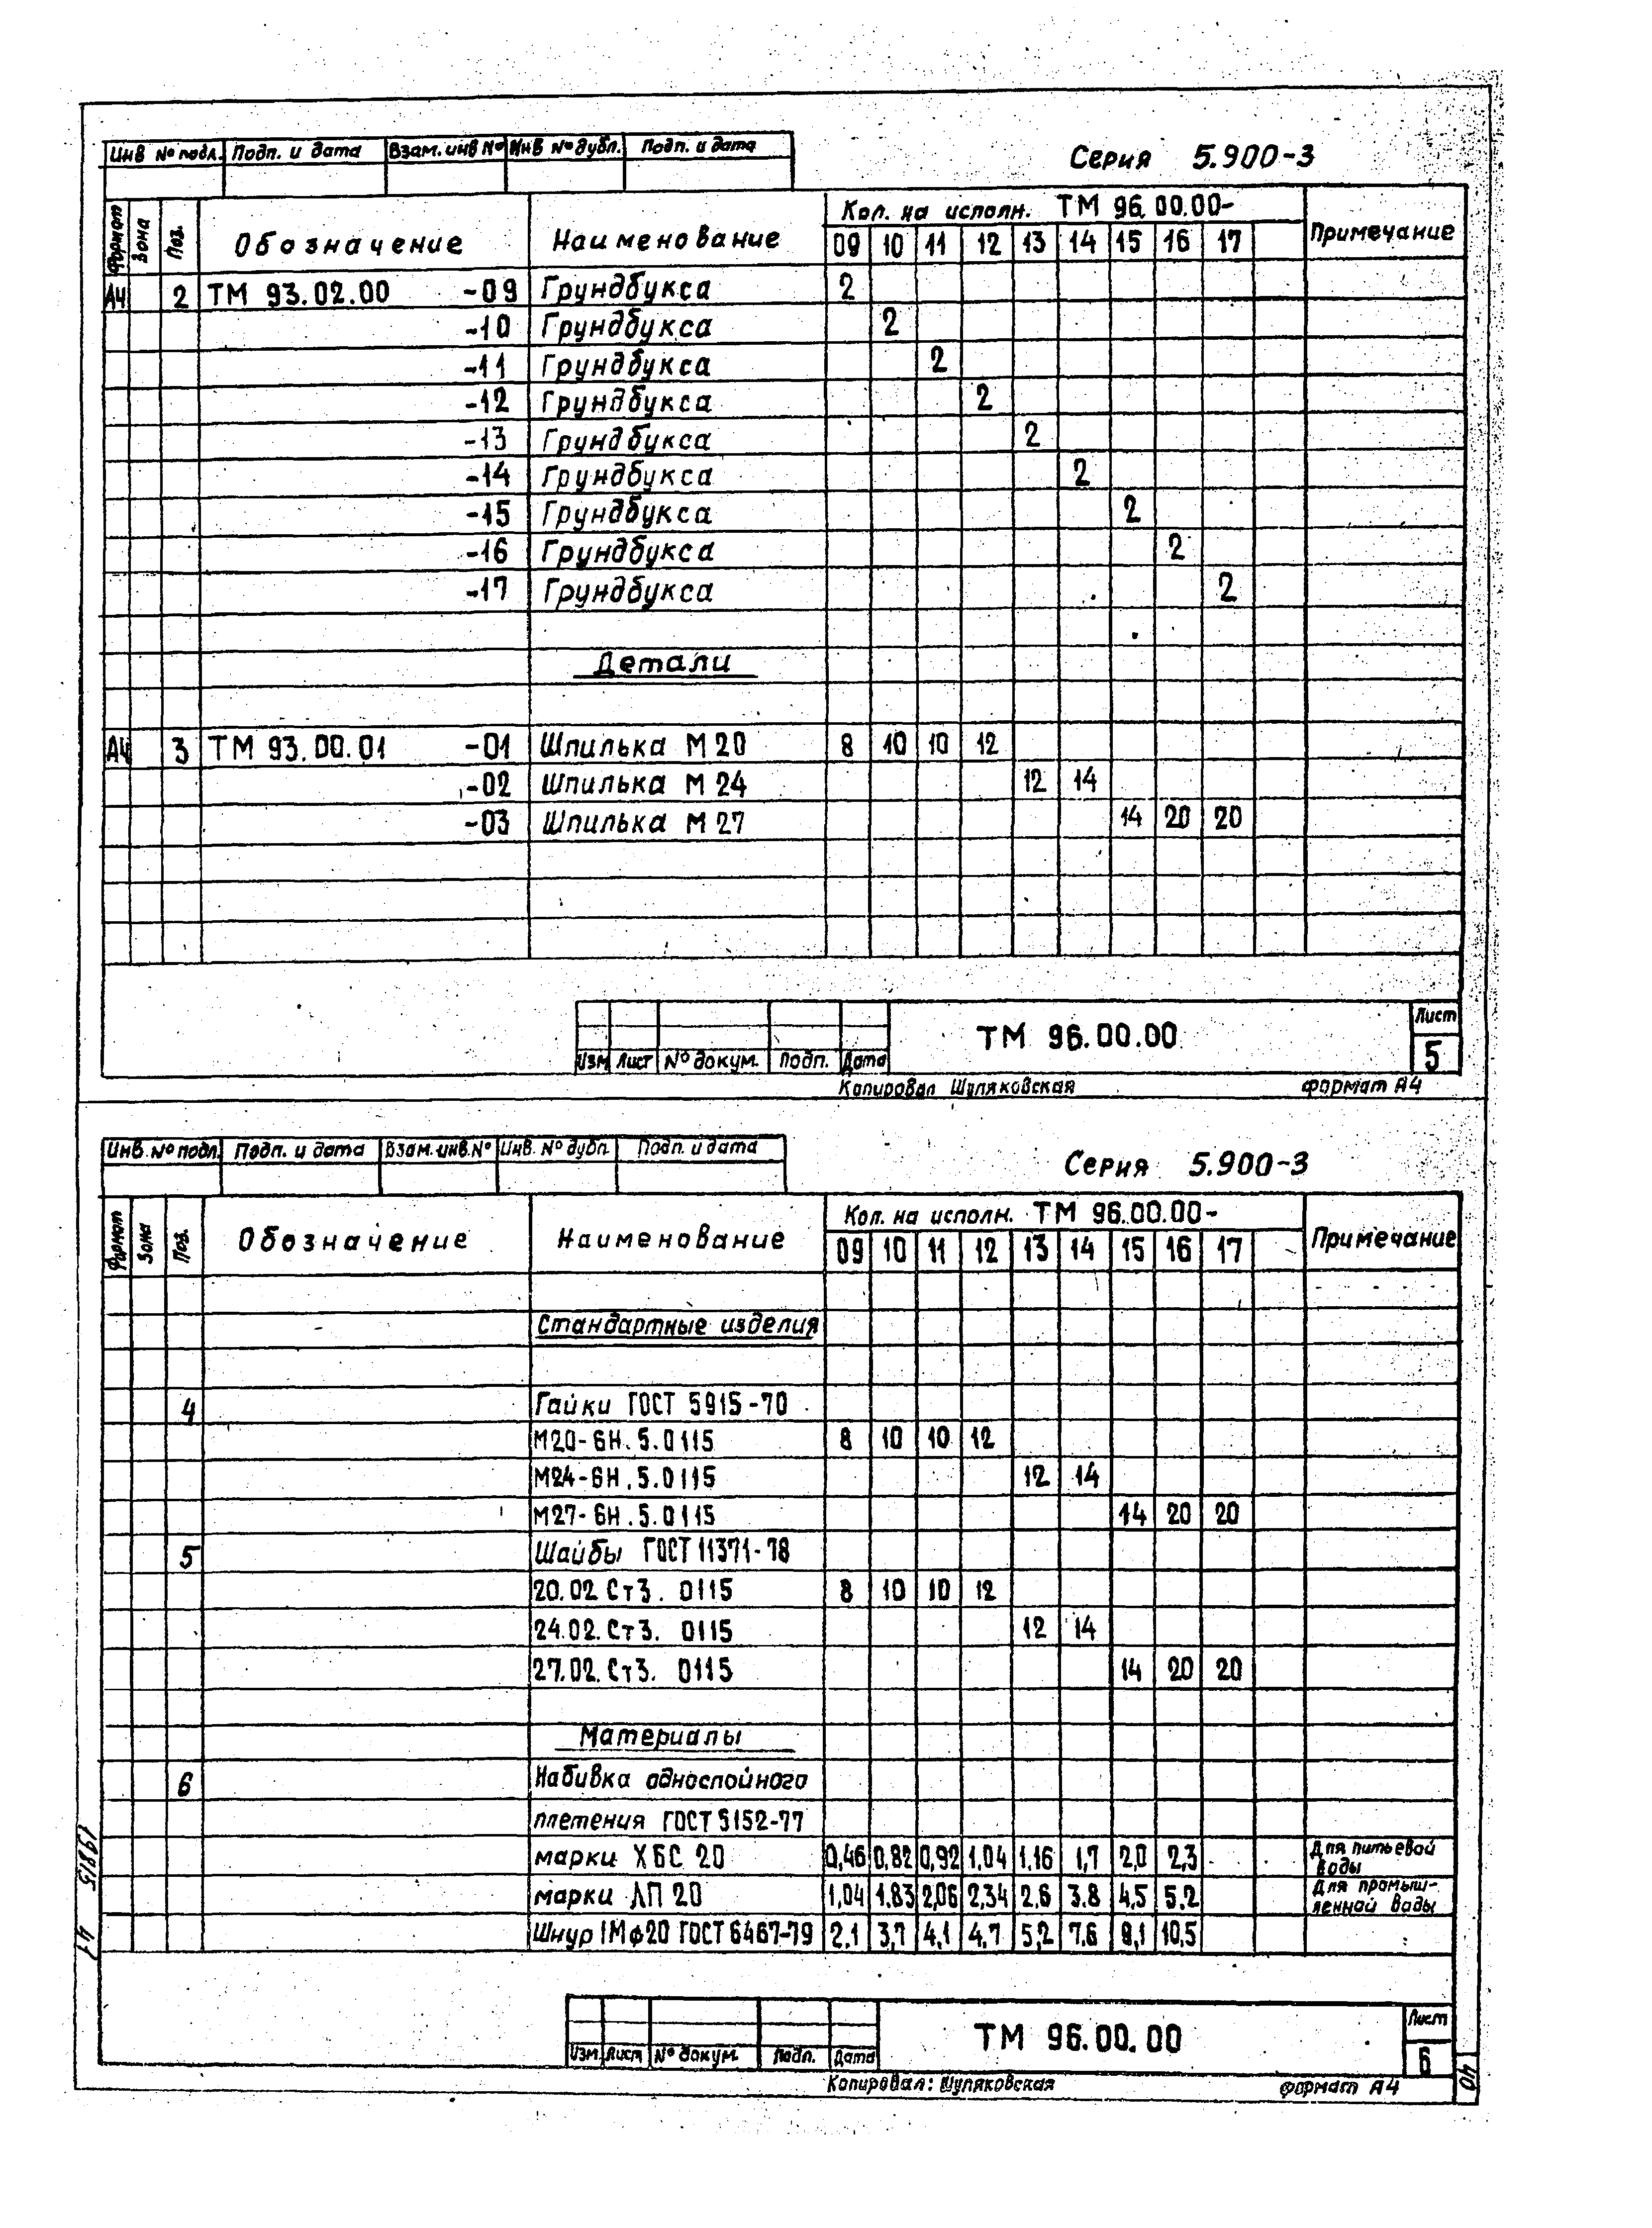 Инв № подл. Подп. и дата Взам. инв № Инв № дубл. Подп. и дата
Серия 5.900-3
Формат Зона Поз. Обозначение Наименование Кол. на исполн. ТМ 96.00.00- Примечание
09 10 11 12 13 14 15 16 17
А4 2 ТМ 93.02.00 -09 Грундбукса 2
-10 Грундбукса 2
-11 Грундбукса 2
-12 Грундбукса 2
-13 Грундбукса 2
-14 Грундбукса 2
-15 Грундбукса 2
-16 Грундбукса 2
-17 Грундбукса 2
Детали
А4 3 ТМ 93.00.01 -01 Шпилька М 20 8 10 10 12
-02 Шпилька М 24 12 14
-03 Шпилька М 27 14 20 20
ТМ 96.00.00
Лист
5
Изм Лист № докум. Подп. Дата
Копировал Шуляковская формат А4
Инв. № подл. Подп. и дата Взам. инв. № Инв. № дубл. Подп. и дата
Серия 5.900-3
Формат Зона Поз. Обозначение Наименование Кол. на исполн. ТМ 96.00.00- Примечание
09 10 11 12 13 14 15 16 17
Стандартные изделия
4 Гайки ГОСТ 5915-70
М20-6Н.5.0115 8 10 10 12
М24-6Н.5.0115 12 14
М27-6Н.5.0115 14 20 20
5 Шайбы ГОСТ 11371-78
20.02 Ст3. 0115 8 10 10 12
24.02. Ст3. 0115 12 14
27.02. Ст3. 0115 14 20 20
Материалы
6 Набивка однослойного
плетения ГОСТ 5152-77
марки ХБС 20 0,46 0,82 0,92 1,04 1,16 1,7 2,0 2,3 Для питьевой воды
марки ЛП 20 1,04 1,83 2,06 2,34 2,6 3,8 4,5 5,2 Для промышленной воды
Шнур 1М ф20 ГОСТ 6467-79 2,1 3,7 4,1 4,7 5,2 7,6 9,1 10,5
ТМ 96.00.00
Лист
6
Изм. Лист № докум. Подп. Дата
Копировал: Шуляковская формат А4
40
19815 41